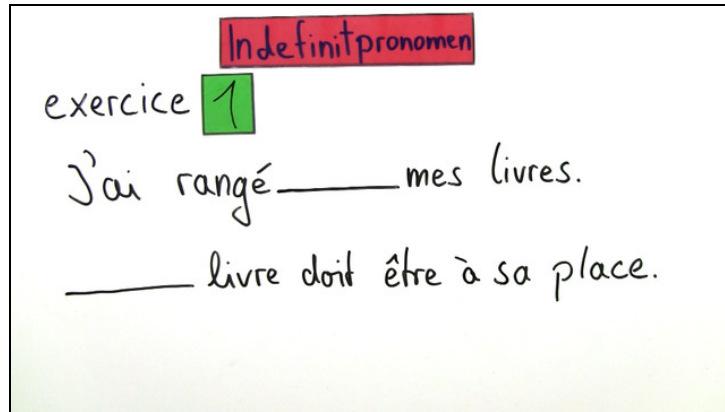 Indefinitpronomen
exercice 1
J'ai rangé______mes livres.
______ livre doit être à sa place.